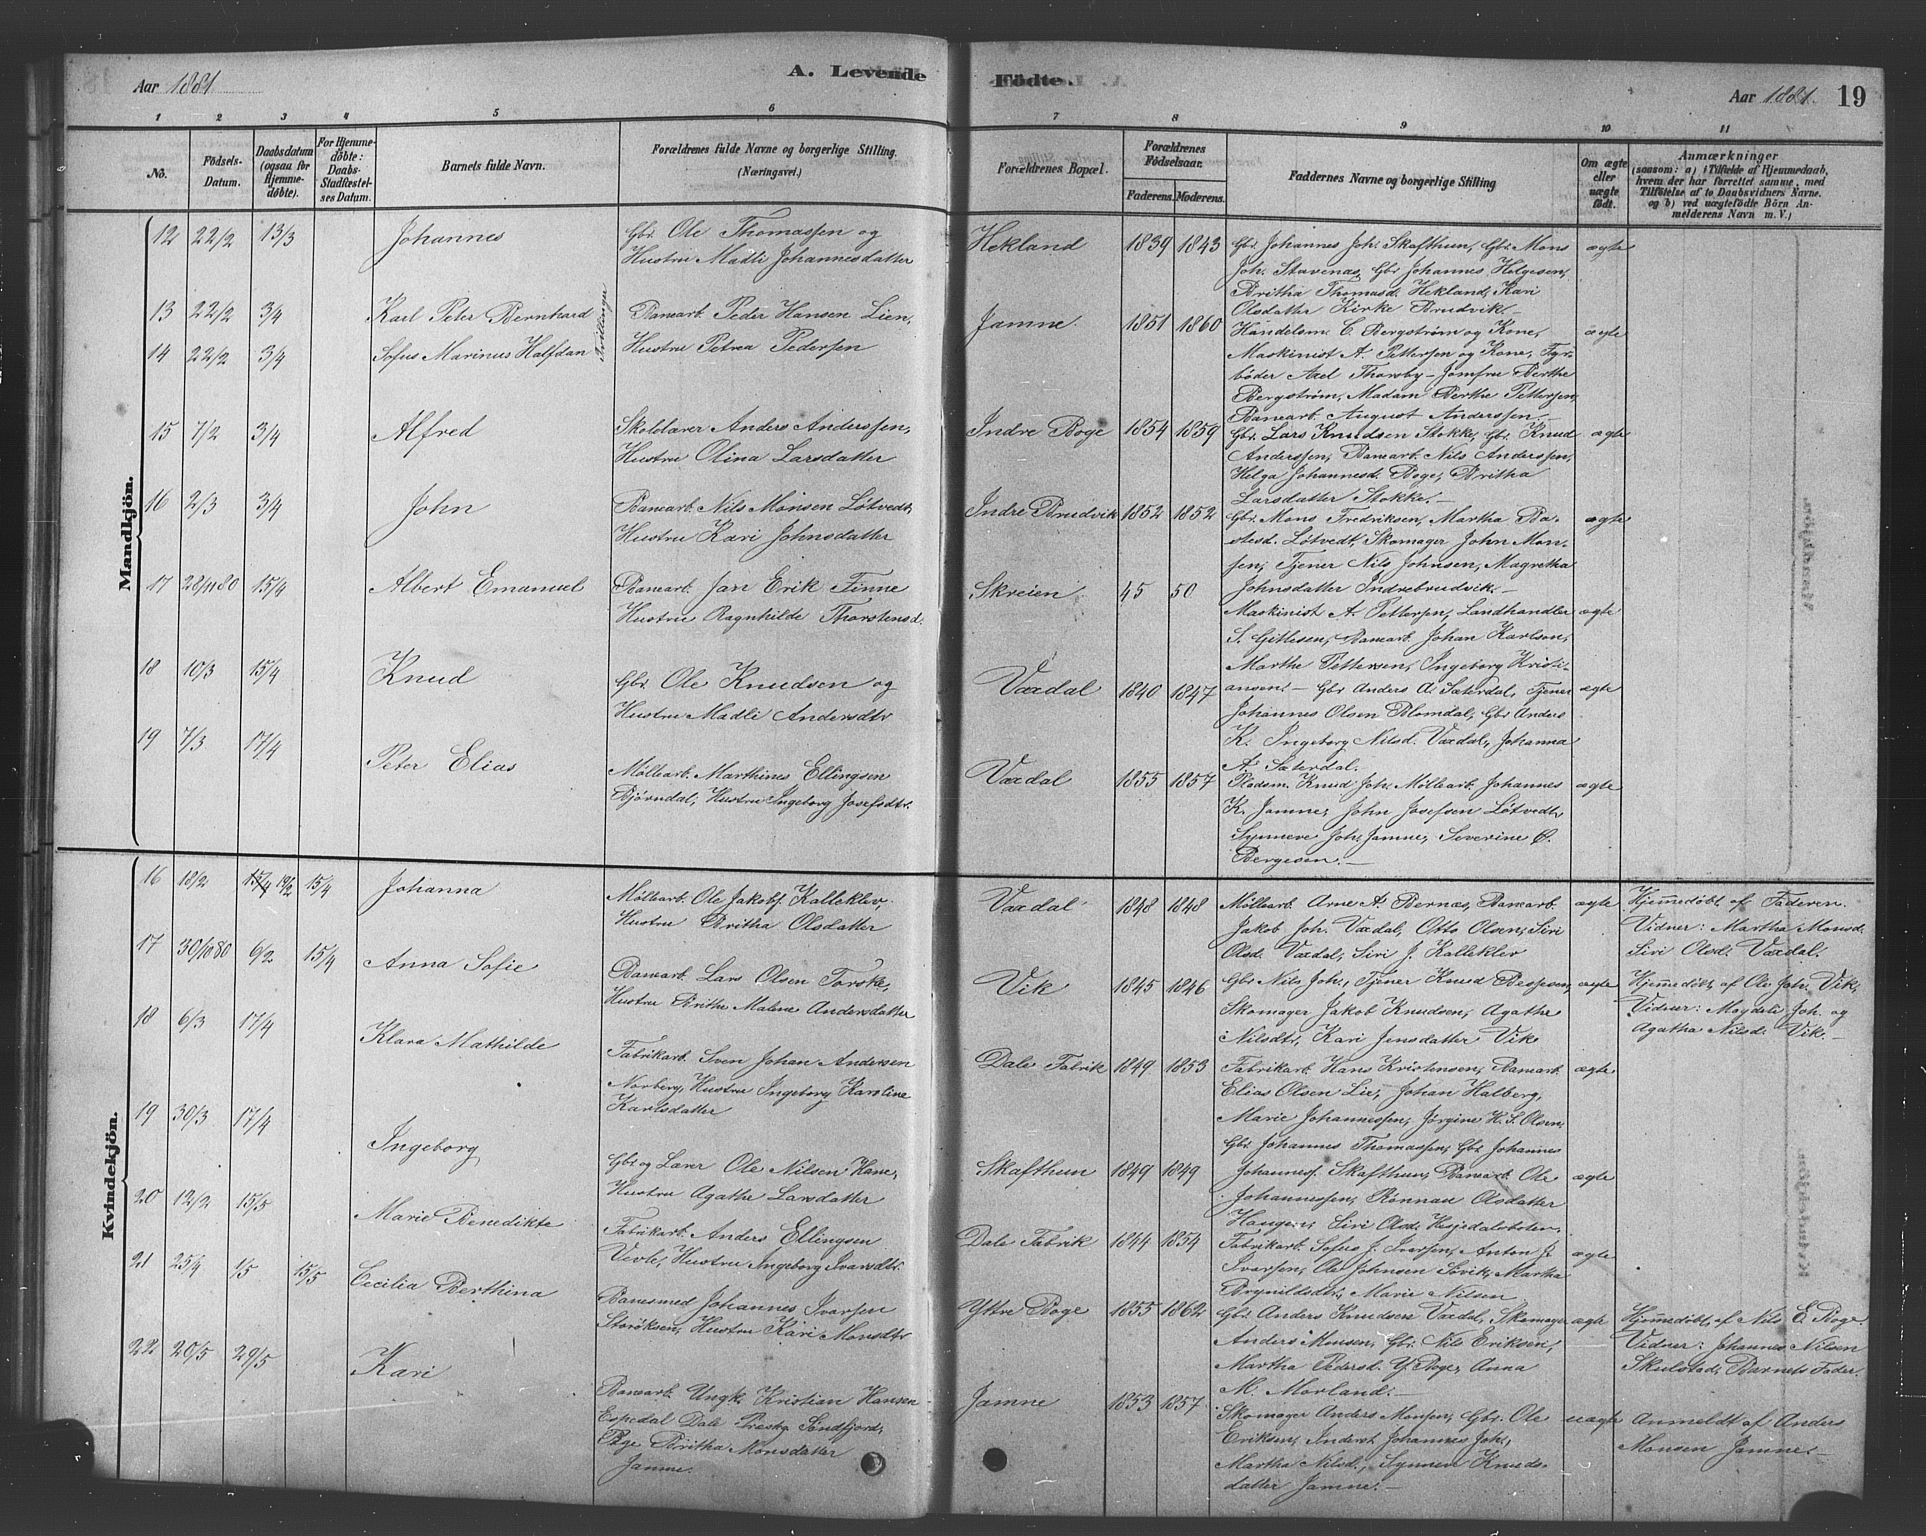 Aar 1881. A. Levende Fødte. Aar 1881. 19
1 2 3 4 5 6 7 8 9 10 11
No. Födsels-Datum. Daabsdatum (ogsaa for Hjemmedöbte). For Hjemmedöbte: Daabs-Stadfæstelses Datum. Barnets fulde Navn. Forældrenes fulde Navne og borgerlige Stilling. (Næringsvei.) Forældrenes Bopæl. Forældrenes Födselsaar. Faderens. Moderens. Faddernes Navne og borgerlige Stilling Om ægte eller uægte födt. Anmærkninger (saasom: a) i Tilfælde af Hjemmedaab, hvem der har forrettet samme, med Tilföielse af to Daabsvidners Navne, og b) ved uægtefödte Börn Anmelderens Navn m. V.)
Mandkjön.
12 22/2 13/3 Johannes Gbr. Ole Thomassen og Hekland 1839 1843 Gbr. Johannes Joh. Skafthun, Gbr. Mons ægte
Hustru Madli Johannesdatter Joh. Stavenæs, Gbr Johannes Helgesen,
Britha Thomasd. Hekland, Kari
Olsdatter Kirke Brudvik.—
13 22/2 3/4 Karl Peter Bernhard Tvillinger Banearb. Peder Hansen Lien, Jamne. 1851 1860 Handelsm. C. Bergstrøm og Kone, ægte
14 22/2 3/4 Sofus Marinus Halfdan Hustru Petrea Pedersen Maskinist A. Pettersen og Kone, Fyr-
bøder Axel Thorsby — Jomfru Berthe
Bergstrøm, Madam Berthe Pettersen,
Banearb. August Anderssen.—
15 7/2 3/4 Alfred Skolelærer Anders Anderssen, Indre Boge 1854 1859 Gbr. Lars Knudsen Stokke, Gbr. Knud ægte
Hustru Olina Larsdatter Anderssen, Banearb. Nils Anderssen,
Helga Johannesd. Boge, Britha
Larsdatter Stokke.—
16 2/3 3/4 John Banearb. Nils Monsen Løtvedt, Indre Brudvik 1852 1852 Gbr. Mons Fredriksen, Martha Ba- ægte
Hustru Kari Johnsdatter stesd. Løtvedt, Skomager John Mon-
sen, Tjener Nils Johnsen, Magretha
Johnsdatter Indrebrudvik.—
17 28/11 80 15/4 Albert Emanuel Banearb. Jan Erik Finne Skreien. 45 50 Maskinist A. Pettersen, Landhandler ægte
Hustru Ragnhilde Thorstensd. S. Gittlesen, Banearb. Johan Karlson,
Marthe Pettersen, Ingeborg Kristi-
ansen.—
18 10/3 15/4 Knud Gbr. Ole Knudsen og Vaxdal 1840 1847 Gbr Anders A. Sæterdal, Tjener ægte
Hustru Madli Andersdtr Johannes Olsen Blomdal, Gbr Anders
K. Ingeborg Nilsd. Vaxdal, Johanna
A. Sæterdal.
19 7/3 17/4 Peter Elias Møllearb. Marthines Ellingsen Vaxdal 1855 1857 Pladsm. Knud Joh. Møllearb. Johannes ægte
Bjørndal, Hustru Ingeborg Josefsdtr. K. Jamne, John Josefsen Løtvedt,
Synneve Joh. Jamne, Severine O.
Bergesen.—
Kvindekjön.
16 18/2 15/4 19/2 15/4 Johanna Møllearb. Ole Jakobs. Kalleklev, Vaxdal 1848 1848 Møllearb. Arne A. Bernæs, Banearb. ægte Hjemmedøbt af Faderen.
Hustru Britha Olsdatter Jakob Joh. Vaxdal, Otto Olsen, Siri Vidner: Martha Monsd.
Olsd. Vaxdal, Siri J. Kalleklev Siri Olsd. Vaxdal.
17 30/10 80 6/2 15/4 Anna Sofie Banearb. Lars Olsen Torske, Vik 1845 1846 Gbr. Nils Joh., Tjener Knud Bessesen, ægte Hjemmedøbt af Ole Joh. Vik,
Hustru Brithe Malene Andersdatter Skomager Jakob Knudsen, Agathe Vidner: Magdeli Joh. og
Nilsdtr, Kari Jensdatter Vik Agatha Nilsd. Vik.—
18 6/3 17/4 Klara Mathilde Fabrikarb. Sven Johan Andersen Dale Fabrik 1849 1853 Fabrikarb. Hans Kristensen, Banearb. ægte
Norberg, Hustru Ingeborg Karoline Elias Olsen Lie, Johan Halberg,
Karlsdatter Marie Johannessen, Jørgine H. S. Olsen.
19 30/3 17/4 Ingeborg Gbr. og Lærer Ole Nilsen Hane, Skafthun 1849 1849 Gbr. Johannes Thomassen, Gbr. Johannes
Hustru Agatha Larsdatter Johannes. Skafthun, Banearb. Ole ægte
Johannessen, Rønnau Olsdatter
Haugen, Siri Olsd. Hesjedalsbolen.
20 12/2 15/5 Marie Benedikte Fabrikarb. Anders Ellingsen Dale Fabrik 1844 1854 Fabrikarb. Sofus J. Ivarsen, Anton J. ægte
Vevle, Hustru Ingeborg Ivarsdtr. Ivarsen, Ole Johnsen Sovik, Martha
Brynildsdtr, Marie Nilsen
21 25/4 1/5 15/5 Cecilia Berthina Banesmed Johannes Ivarsen Yttre Boge 1855 1862 Gbr. Anders Knudsen Vaxdal, Skomager ægte Hjemmedøbt af Nils E. Boge.
Storøksen, Hustru Kari Monsdtr Anders Monsen, Gbr. Nils Eriksen, Vidner: Johannes Nilsen
Martha Pedersd. Y. Boge, Anna Skulstad, Barnets Fader.
M. Morland.—
22 20/5 29/5 Kari Banearb. Ungk. Kristian Hansen Jamne 1853 1857 Skomager Anders Monsen, Gbr. Ole uægte Anmeldt af Anders
Espedal Dale Præstg. Søndfjord, Eriksen, Inderst Johannes Joh., Monsen Jamne.—
Pige Britha Monsdatter Martha Nilsd., Synneve Knuds-
Jamne. datter Jamne.—